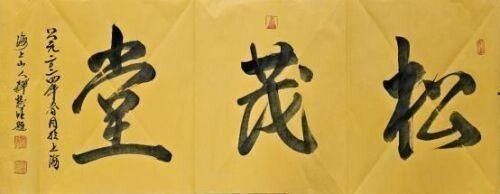 松茂堂
公元二〇一四年春月於上海
海上山人題